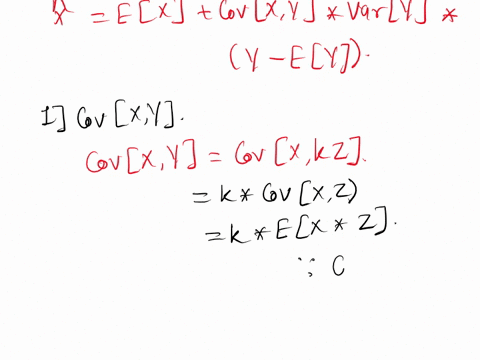 x̂ = E[X] + Cov[X,Y] * Var[Y] *
(Y - E[Y]).
1] Cov[X,Y].
Cov[X,Y] = Cov[X,kZ].
= k * Cov[X,Z)
= k * E[X * Z].
∵ C